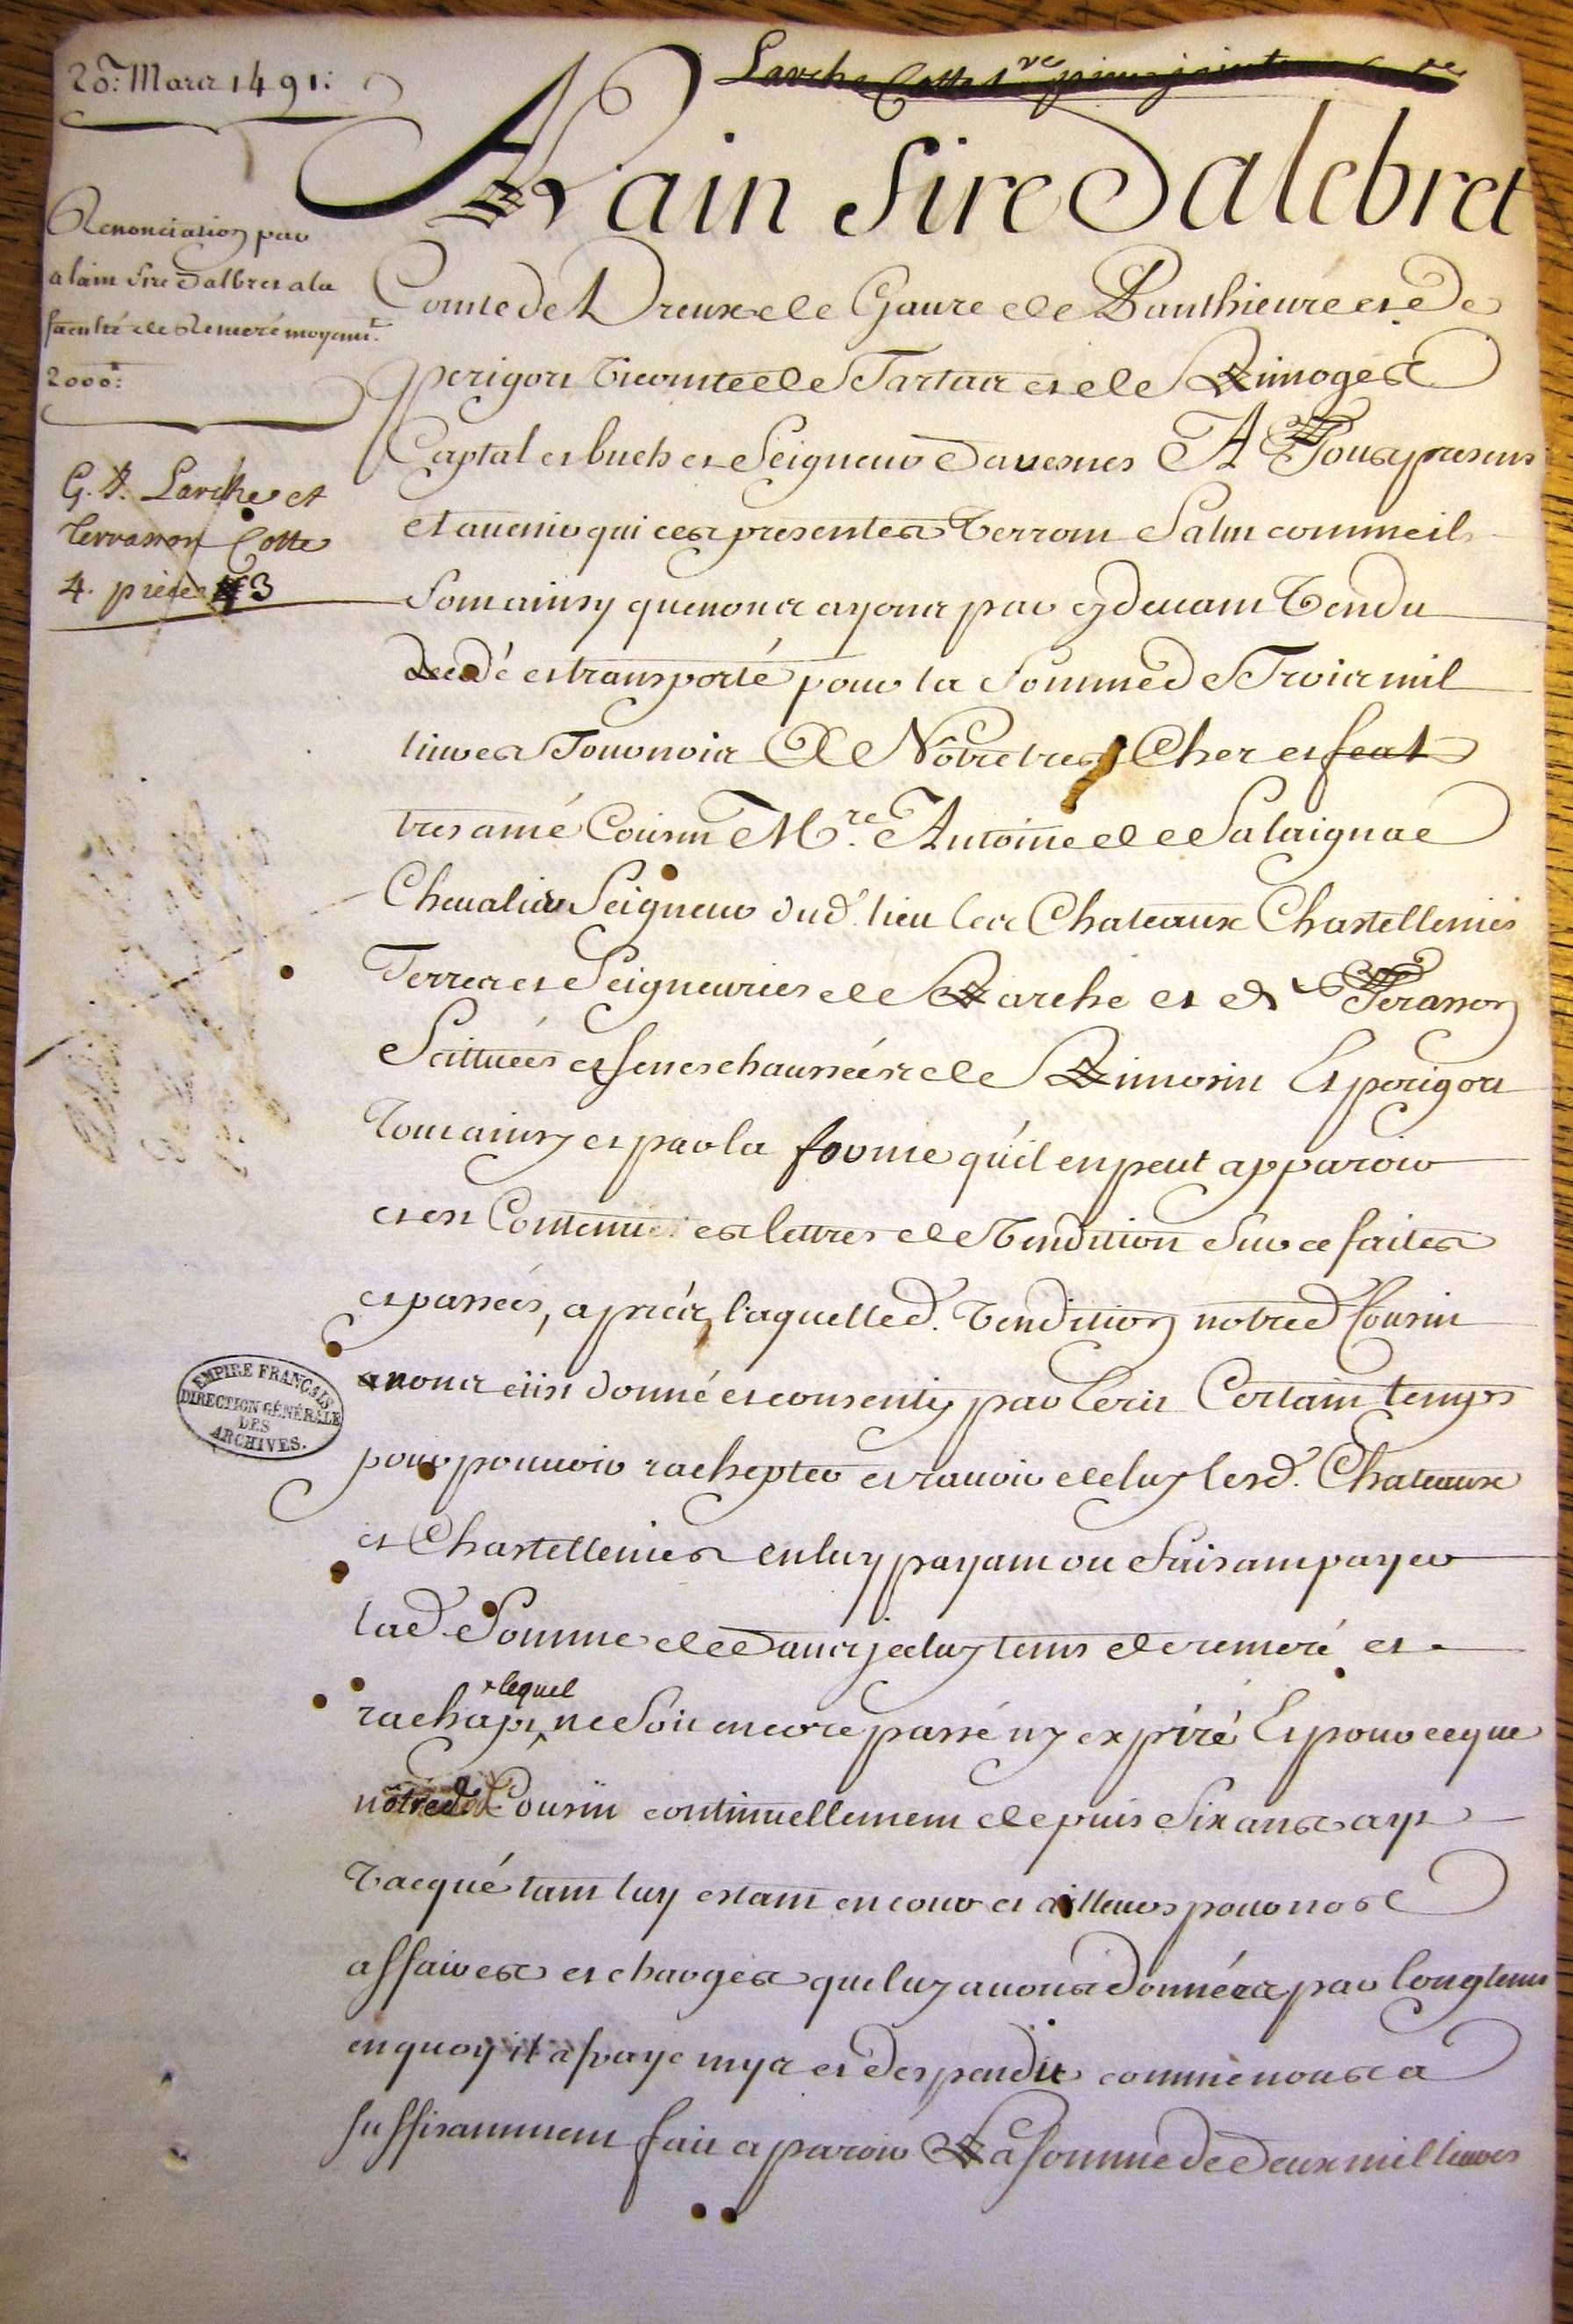 20: Mars 1491:
Larche Cotte 1re piece jointe
Renonciation par
alain Sire Dalbret a la
faculté de Remeré moyant
2000tt:
G. B. Larche et
Terrasson Cotte
4. piece 3
Alain Sire Dalebret
Comte de Dreux de Gaure de Panthieure et De
perigort Vicomte de Tartas et de Limoges
Captal et buch et Seigneur Davesnes A Tous presens
et auenir qui ces presentes Verront Salut comme il
Soit ainsy que nous ayons par cy deuant Vendu
cedé et transporté pour la Somme de Trois mil
liures Tournois A Nôtre tres Cher et feal
tres amé Cousin Mre. Antoine de Salaignac
Cheualier Seigneur dud. lieu les Chateaux Chastellenies
Terres et Seigneuries de Larche et de Terasson
Scittuées es seneschaussées de Limosin Et perigort
Tout ainsy et par la forme qu'il en peut apparoir
et est Contenu es lettres de Vendition Sur ce faites
et passées, aprés laquelle d. Vendition notred Cousin
a nous eust donné et consenty par Ecrit Certain temps
pour pouuoir rachepter et rauoir de luy lesd. Chateaux
et Chastellenies en luy payant ou faisant payer
lad. Somme dedans jceluy tems de remeré et
rachapt lequel ne Soit encore passé ny expiré Et pour ce que
nôtred. Cousin continuellement depuis Six ans ayt
Vacqué tant luy estant en cour et ailleurs pour nos
affaires et charges que luy auons données par longtems
en quoy il a frayé mys et despendu comme nous a
suffisamment fait aparoir La somme de Deux mil liures
EMPIRE FRANÇAIS
DIRECTION GÉNÉRALE
DES
ARCHIVES.